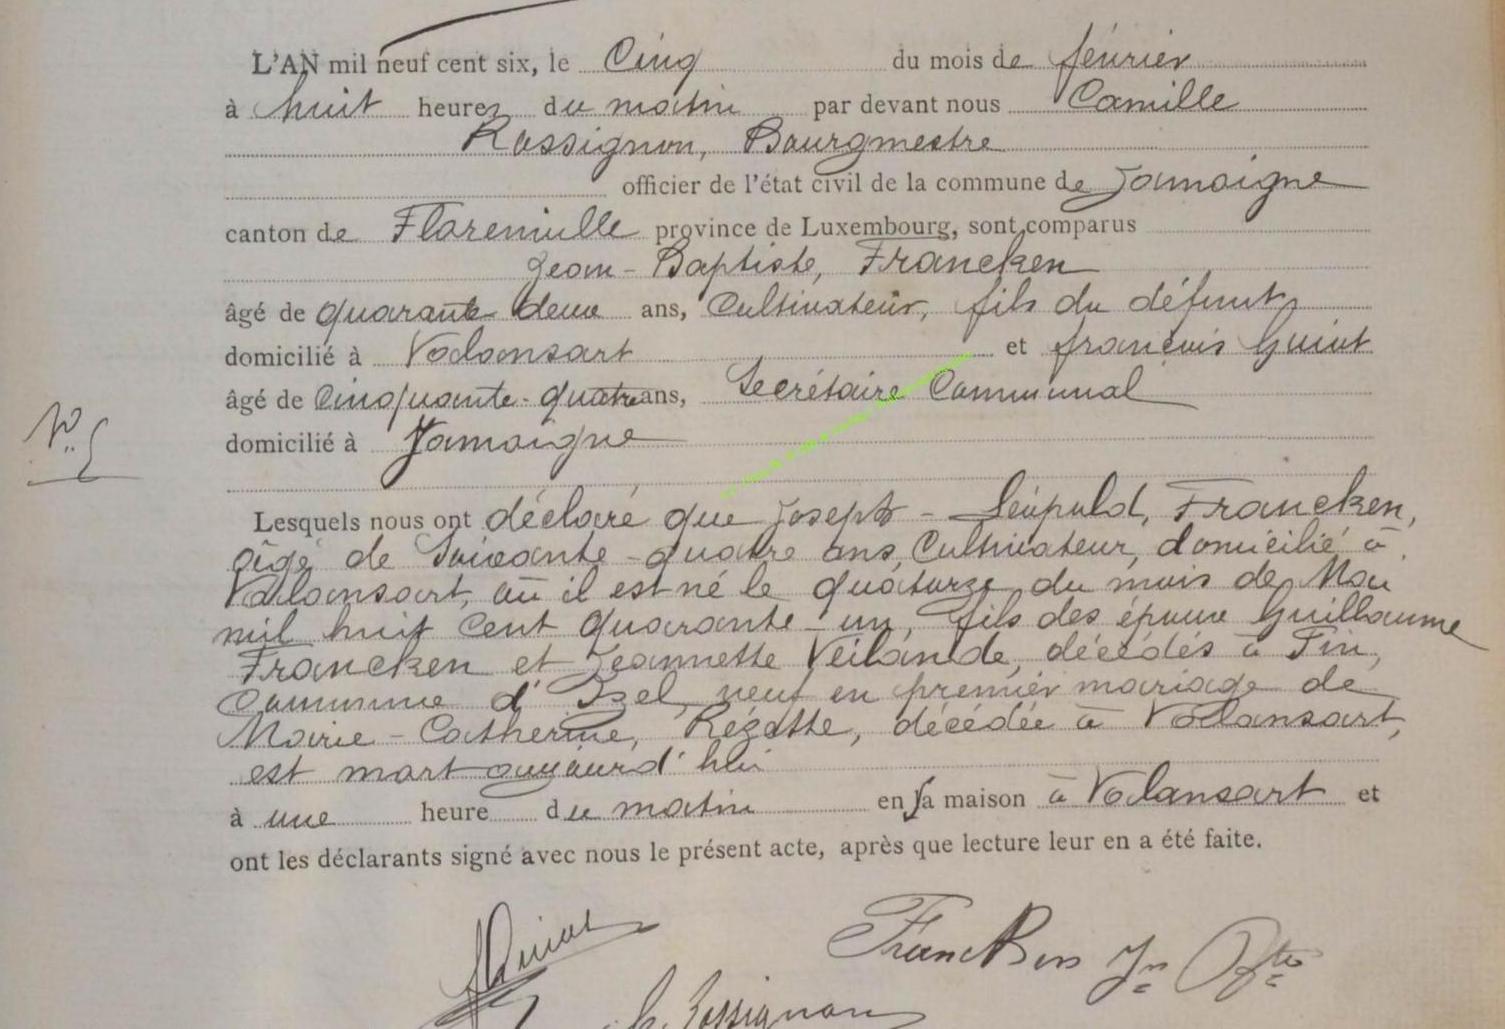 L'AN mil neuf cent six, le Cinq du mois de février
à huit heures du matin par devant nous Camille
Rossignon, Bourgmestre
officier de l'état civil de la commune de Jamoigne
canton de Florenville province de Luxembourg, sont comparus
Jean-Baptiste, Francken
âgé de quarante-deux ans, Cultivateur, fils du défunt,
domicilié à Valansart et françois Guiot
âgé de Cinquante-quatre ans, Secrétaire Communal
N° 5
domicilié à Jamoigne
Lesquels nous ont déclaré que Joseph-Léopold, Francken,
âgé de Soixante-quatre ans, Cultivateur, domicilié à
Valansart, où il est né le quatorze du mois de Mai
mil huit Cent quarante-un, fils des époux Guillaume
Francken et Jeannette, décédés à Pin,
Commune d'Izel, veuf en premier mariage de
Marie-Catherine, Rézette, décédée à Valansart,
est mort aujourd'hui
à une heure du matin en sa maison à Valansart et
ont les déclarants signé avec nous le présent acte, après que lecture leur en a été faite.
Francken Jn Bte
C. Rossignon